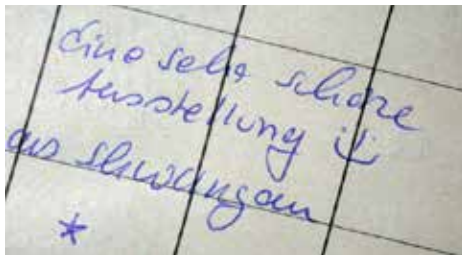 Eine sehr schöne
Ausstellung ;)
aus Schwangau
*